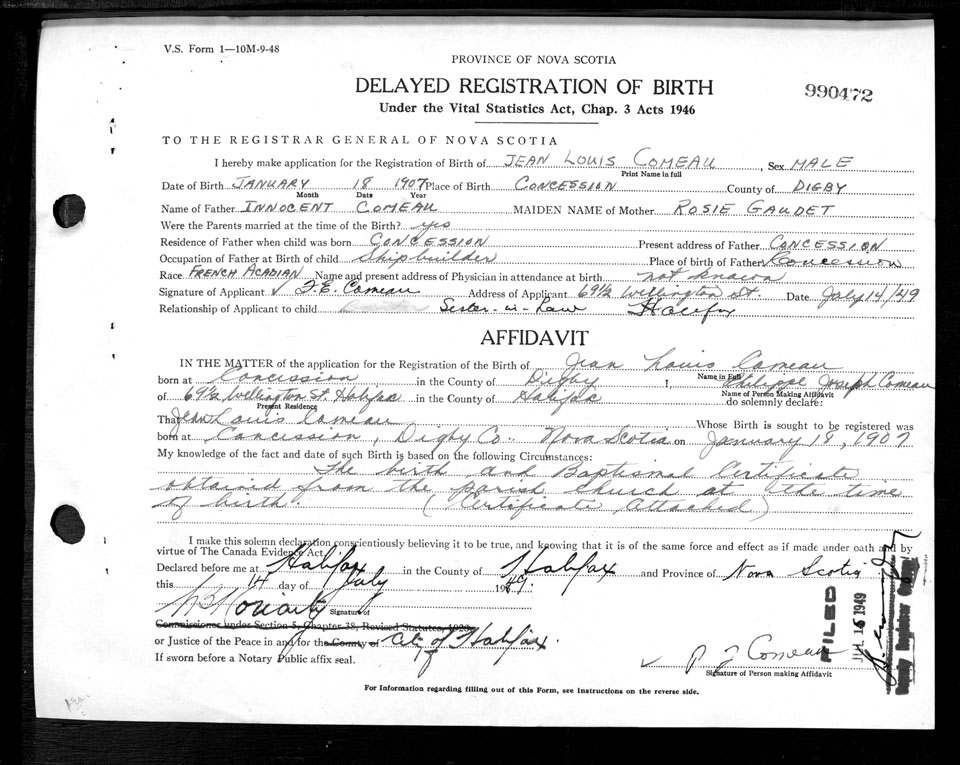 V.S. Form 1—10M-9-48
PROVINCE OF NOVA SCOTIA
DELAYED REGISTRATION OF BIRTH
990472
Under the Vital Statistics Act, Chap. 3 Acts 1946
TO THE REGISTRAR GENERAL OF NOVA SCOTIA
I hereby make application for the Registration of Birth of JEAN LOUIS COMEAU, Sex MALE
Print Name in full
Date of Birth JANUARY 18 1907 Place of Birth CONCESSION County of DIGBY
Month Date Year
Name of Father INNOCENT COMEAU MAIDEN NAME of Mother ROSIE GAUDET
Were the Parents married at the time of the Birth? yes
Residence of Father when child was born CONCESSION Present address of Father CONCESSION
Occupation of Father at Birth of child Shipbuilder Place of birth of Father Concession
Race FRENCH ACADIAN Name and present address of Physician in attendance at birth not known
Signature of Applicant J.E. Comeau Address of Applicant 69½ Wellington St. Date July 14/49
Relationship of Applicant to child Sister-in-Law Halifax
AFFIDAVIT
IN THE MATTER of the application for the Registration of Birth of Jean Louis Comeau
Name in Full
born at Concession in the County of Digby I, Philippe Joseph Comeau
Name of Person Making Affidavit
of 69½ Wellington St Halifax in the County of Halifax do solemnly declare:
Present Residence
That Jean Louis Comeau Whose Birth is sought to be registered was
born at Concession, Digby Co. Nova Scotia on January 18, 1907
My knowledge of the fact and date of such Birth is based on the following Circumstances:
The birth and Baptismal Certificate
obtained from the parish church at the time
of birth. (Certificate Attached)
I make this solemn declaration conscientiously believing it to be true, and knowing that it is of the same force and effect as if made under oath and by
virtue of The Canada Evidence Act.
Declared before me at Halifax in the County of Halifax and Province of Nova Scotia
this 14 day of July 1949.
Signature of
Commissioner under Section 5, Chapter 38, Revised Statutes, 1923
or Justice of the Peace in and for the County of City of Halifax.
If sworn before a Notary Public affix seal.
P J Comeau
Signature of Person making Affidavit
FILED
JUL 15 1949
Deputy Registrar General
For Information regarding filling out of this Form, see Instructions on the reverse side.